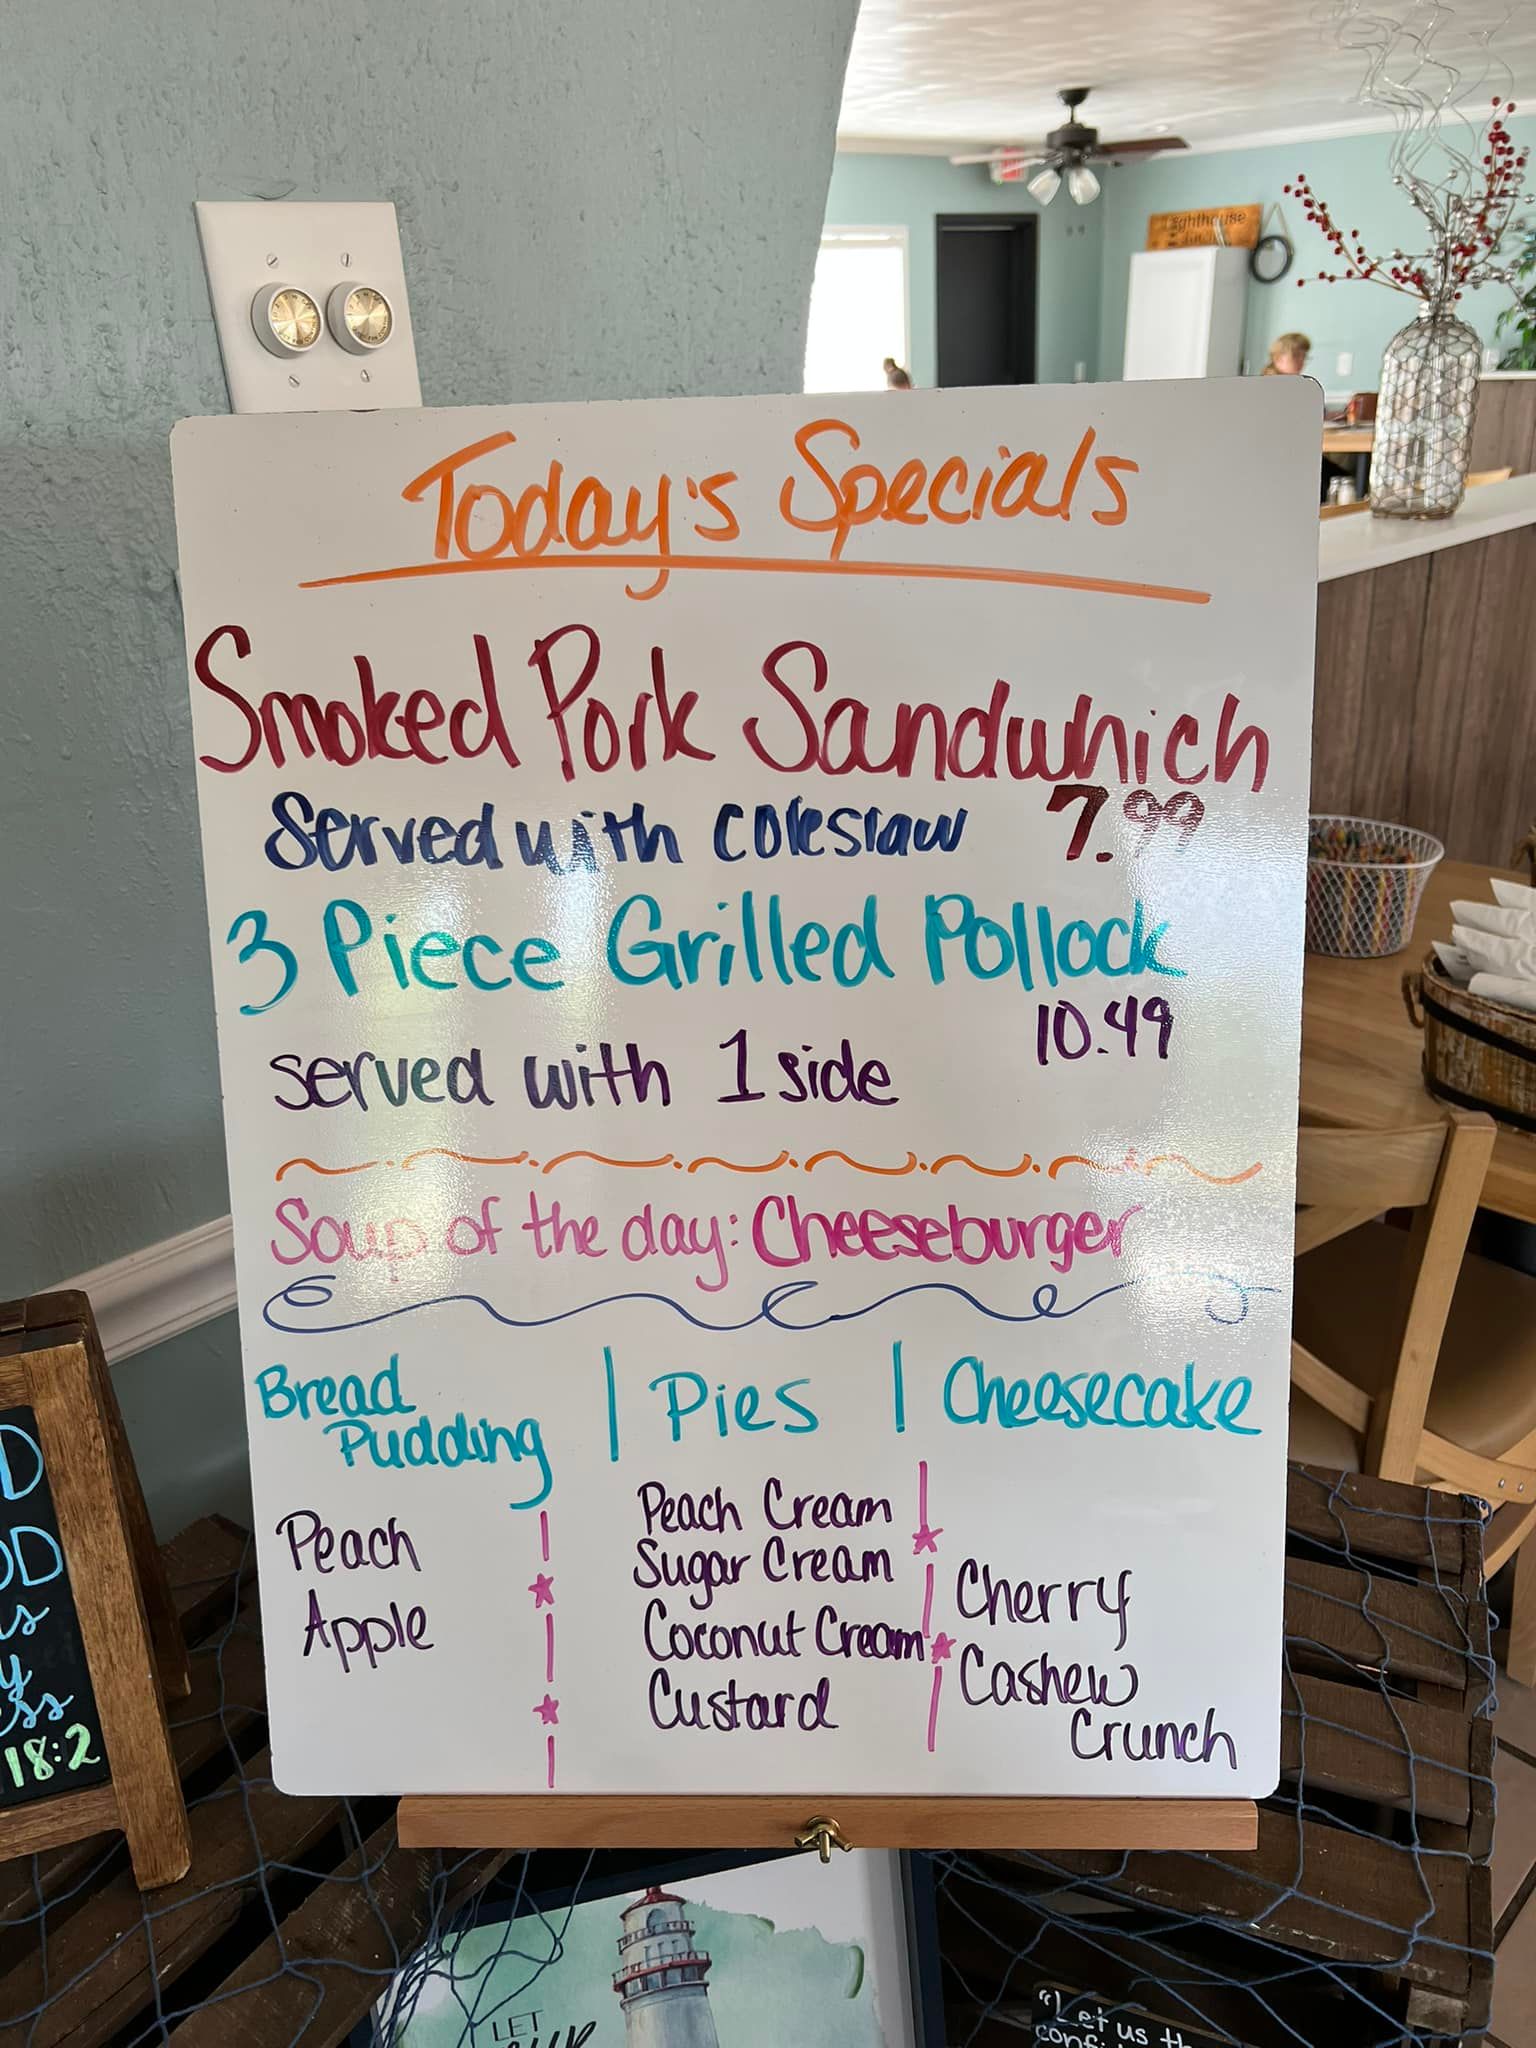 Today's Specials
Smoked Pork Sandwhich
Served with coleslaw 7.99
3 Piece Grilled Pollock
10.49
served with 1 side
Soup of the day: Cheeseburger
Bread Pudding | Pies | Cheesecake
Peach
Apple
Peach Cream
Sugar Cream
Coconut Cream
Custard
Cherry
Cashew
Crunch
Lighthouse
18:2
LET
"Let us th